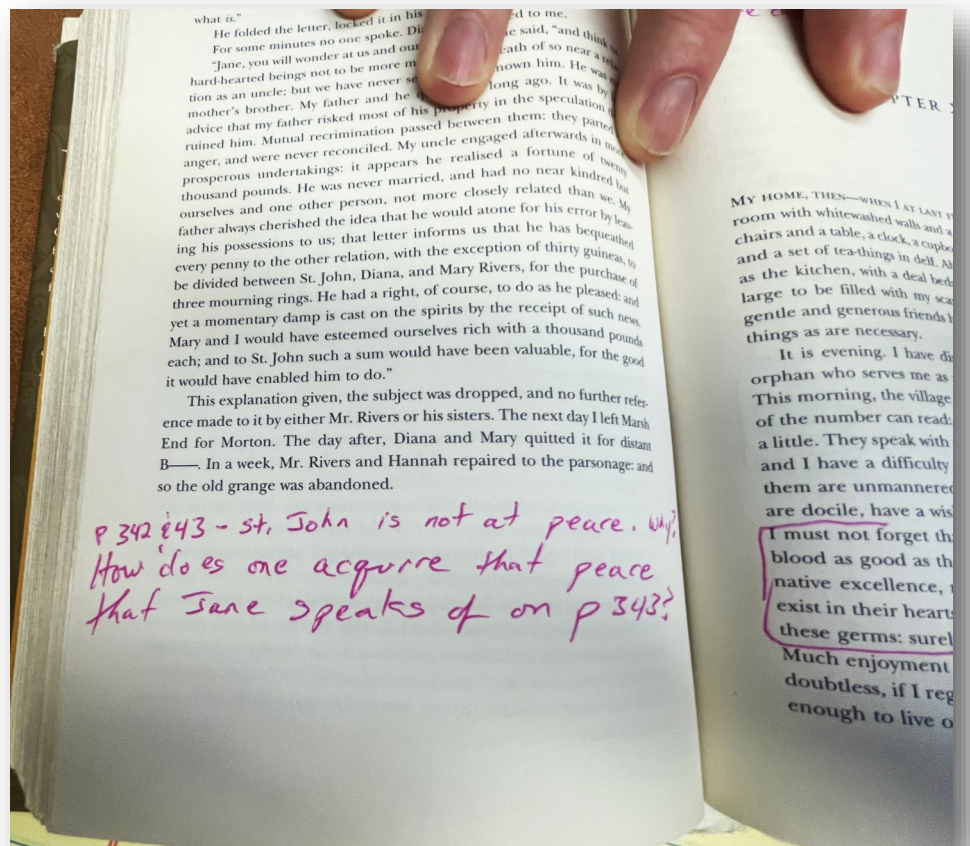 what is."
He folded the letter, locked it in his ed to me.
For some minutes no one spoke. Di e said, "and think
"Jane, you will wonder at us and our eath of so near a
hard-hearted beings not to be more m nown him. He was
tion as an uncle; but we have never se long ago. It was by
mother's brother. My father and he property in the speculation
advice that my father risked most of his
ruined him. Mutual recrimination passed between them: they parted
anger, and were never reconciled. My uncle engaged afterwards in
prosperous undertakings: it appears he realised a fortune of twenty
thousand pounds. He was never married, and had no near kindred but
ourselves and one other person, not more closely related than we. My
father always cherished the idea that he would atone for his error by leav-
ing his possessions to us; that letter informs us that he has bequeathed
every penny to the other relation, with the exception of thirty guineas, to
be divided between St. John, Diana, and Mary Rivers, for the purchase of
three mourning rings. He had a right, of course, to do as he pleased: and
yet a momentary damp is cast on the spirits by the receipt of such news.
Mary and I would have esteemed ourselves rich with a thousand pounds
each; and to St. John such a sum would have been valuable, for the good
it would have enabled him to do."
This explanation given, the subject was dropped, and no further refer-
ence made to it by either Mr. Rivers or his sisters. The next day I left Marsh
End for Morton. The day after, Diana and Mary quitted it for distant
B——. In a week, Mr. Rivers and Hannah repaired to the parsonage: and
so the old grange was abandoned.
p 342 & 43 - St. John is not at peace. Why?
How does one acqurre that peace
that Jane speaks of on p 343?
PTER
MY HOME, THEN—WHEN I AT LAST
room with whitewashed walls and a
chairs and a table, a clock, a cupbo
and a set of tea-things in delf. Ab
as the kitchen, with a deal beds
large to be filled with my sca
gentle and generous friends h
things as are necessary.
It is evening. I have dis
orphan who serves me as
This morning, the village
of the number can read:
a little. They speak with
and I have a difficulty
them are unmannered
are docile, have a wis
I must not forget th
blood as good as th
native excellence,
exist in their heart
these germs: surel
Much enjoyment
doubtless, if I reg
enough to live o